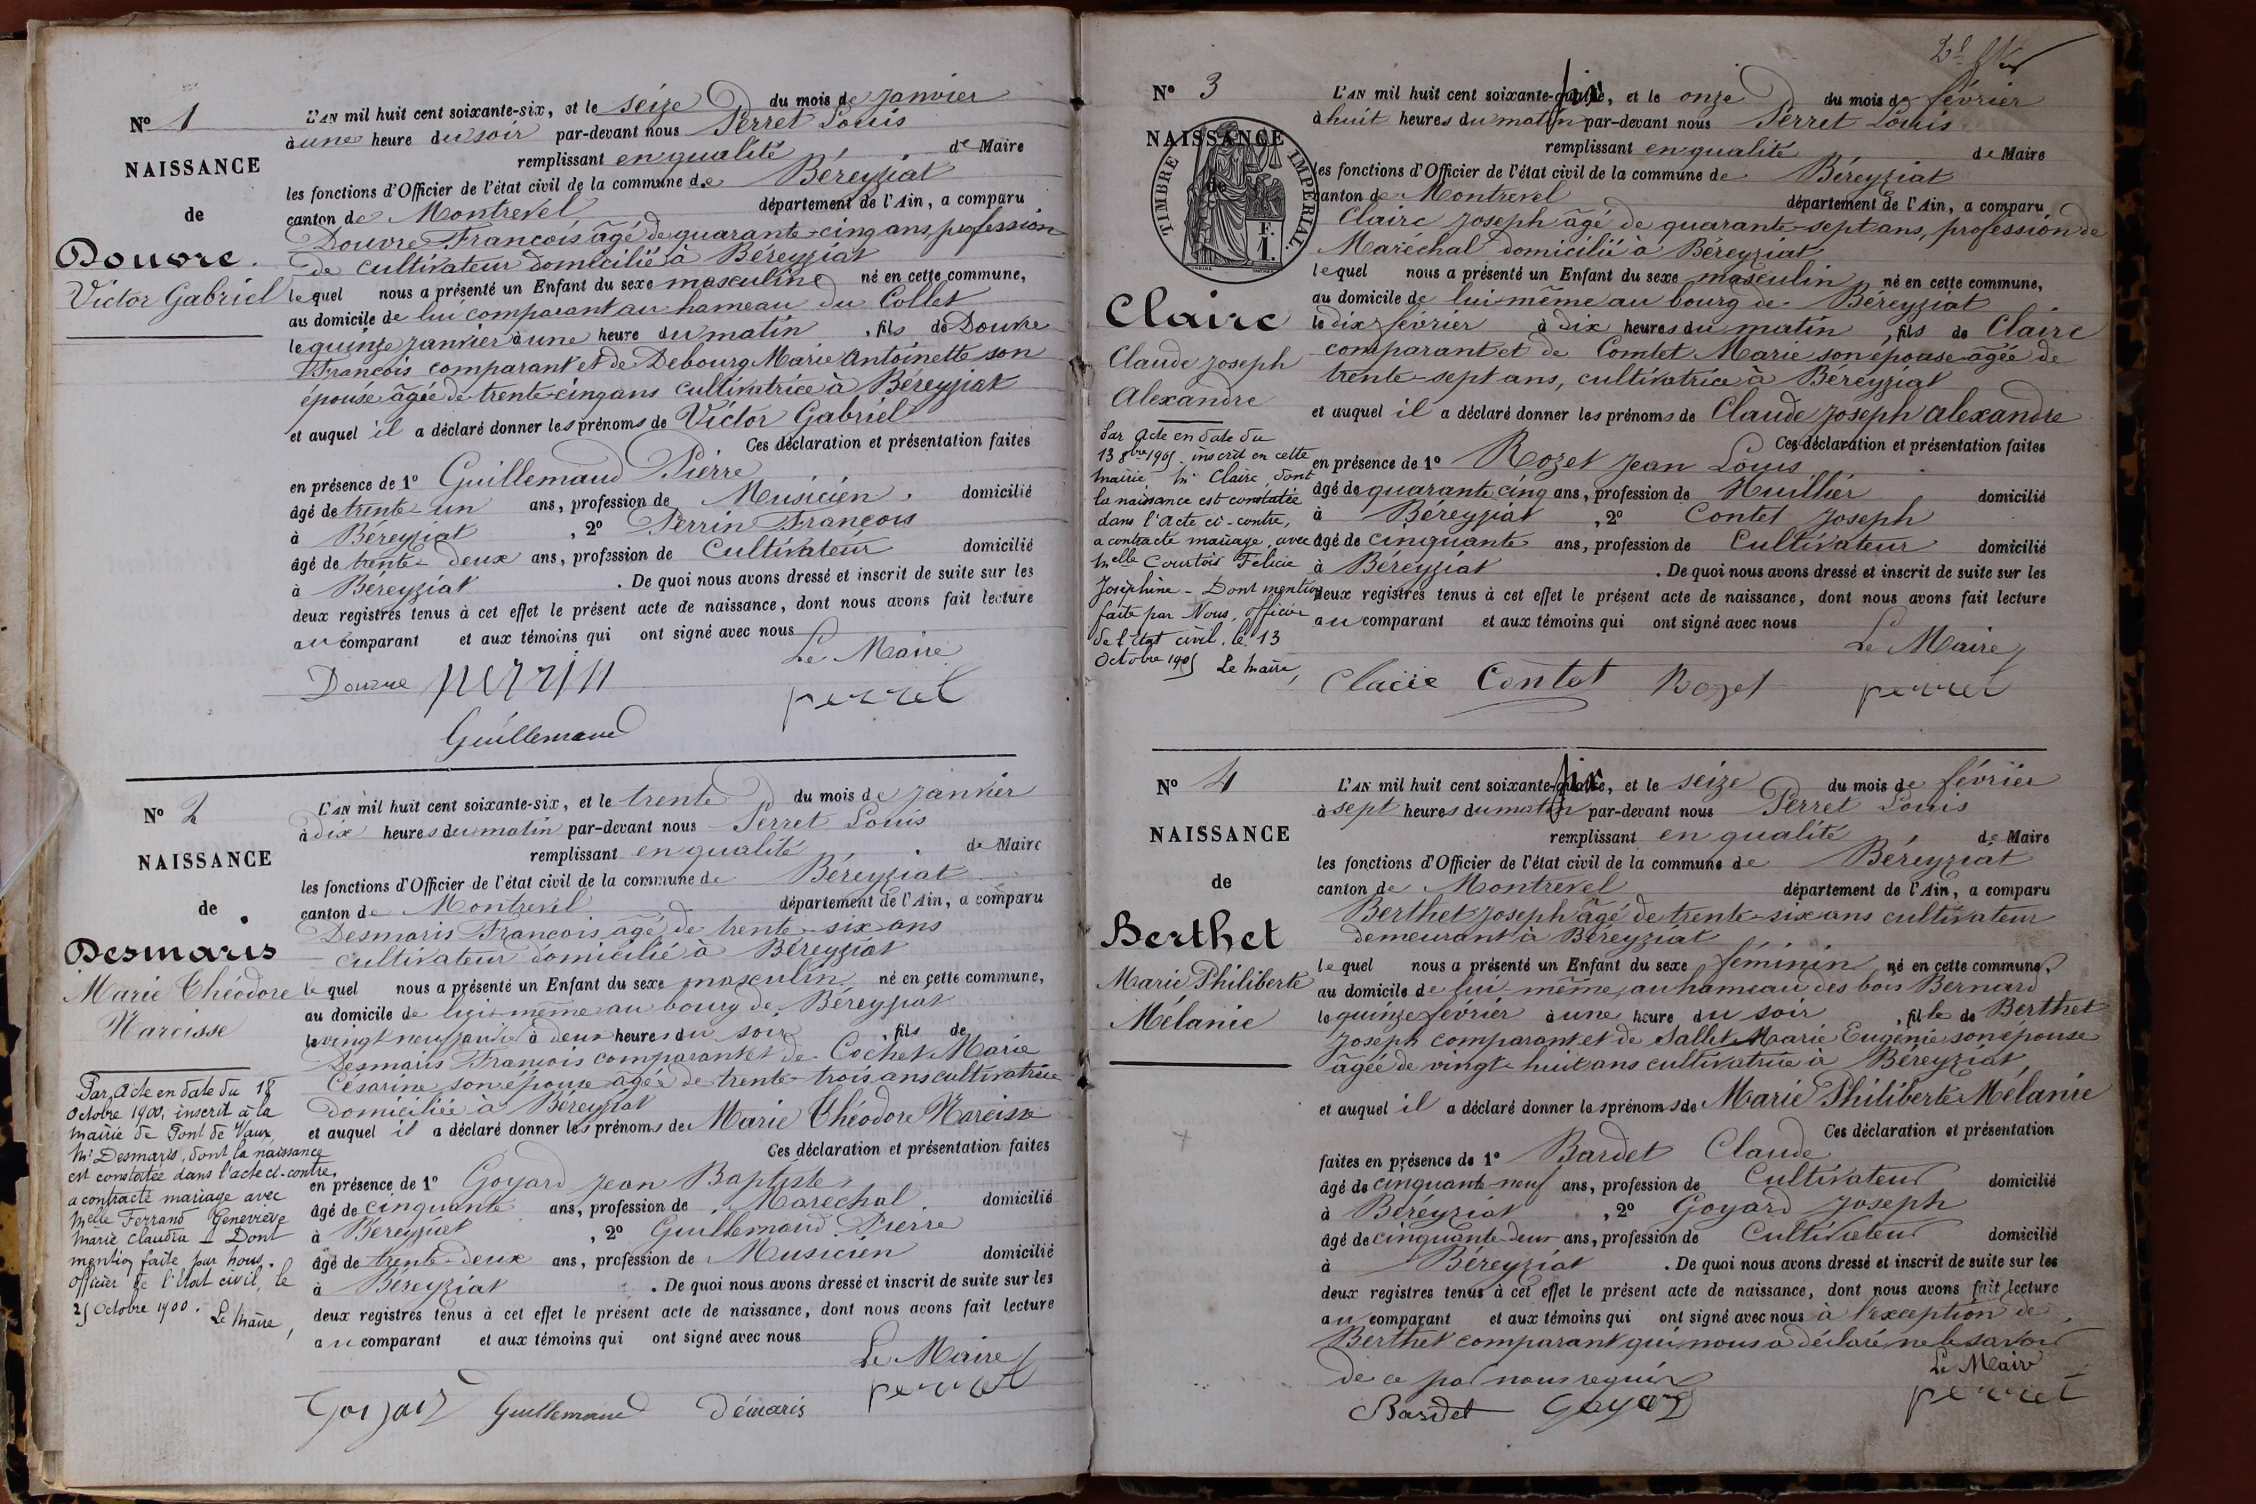 N° 1
NAISSANCE
de
Douvre.
Victor Gabriel
L'AN mil huit cent soixante-six, et le seize du mois de janvier
à une heure du soir par-devant nous Perret Louis
remplissant en qualité de Maire
les fonctions d'Officier de l'état civil de la commune de Béreyziat
canton de Montrevel département de l'Ain, a comparu
Douvre François âgé de quarante-cinq ans, profession
de cultivateur domicilié à Béreyziat
lequel nous a présenté un Enfant du sexe masculine né en cette commune,
au domicile de lui comparant au hameau du Collet
le quinze janvier à une heure du matin, fils de Douvre
François comparant et de Debourg Marie Antoinette son
épouse âgée de trente-cinq ans cultivatrice à Béreyziat
et auquel il a déclaré donner les prénoms de Victor Gabriel
Ces déclaration et présentation faites
en présence de 1° Guillemaud Pierre
âgé de trente-un ans, profession de Musicien, domicilié
à Béreyziat, 2° Perrin François
âgé de trente-deux ans, profession de Cultivateur domicilié
à Béreyziat. De quoi nous avons dressé et inscrit de suite sur les
deux registres tenus à cet effet le présent acte de naissance, dont nous avons fait lecture
au comparant et aux témoins qui ont signé avec nous
Le Maire
Douvre perrin perret
Guillemaud
N° 2
NAISSANCE
de
Desmaris
Marie Théodore
Narcisse
Par Acte en date du 18
Octobre 1900, inscrit à la
mairie de Pont de Vaux
Mr Desmaris, dont la naissance
est constatée dans l'acte ci-contre,
a contracté mariage avec
Melle Ferrand Geneviève
Marie Claudia – Dont
mention faite par nous.
Officier de l'Etat civil, le
25 Octobre 1900. Le Maire,
L'AN mil huit cent soixante-six, et le trente du mois de janvier
à dix heures du matin par-devant nous Perret Louis
remplissant en qualité de Maire
les fonctions d'Officier de l'état civil de la commune de Béreyziat
canton de Montrevel département de l'Ain, a comparu
Desmaris François âgé de trente-six ans
cultivateur domicilié à Béreyziat
lequel nous a présenté un Enfant du sexe masculin né en cette commune,
au domicile de lui-même au bourg de Béreyziat
le vingt neuf janvier à deux heures du soir, fils de
Desmaris François comparant et de Cochet Marie
Césarine son épouse âgée de trente-trois ans cultivatrice
domiciliée à Béreyziat
et auquel il a déclaré donner les prénoms de Marie Théodore Narcisse
Ces déclaration et présentation faites
en présence de 1° Goyard Jean Baptiste
âgé de cinquante ans, profession de Maréchal domicilié
à Béreyziat, 2° Guillemaud Pierre
âgé de trente-deux ans, profession de Musicien domicilié
à Béreyziat. De quoi nous avons dressé et inscrit de suite sur les
deux registres tenus à cet effet le présent acte de naissance, dont nous avons fait lecture
au comparant et aux témoins qui ont signé avec nous
Le Maire
perret
Goyard Guillemaud Démaris
N° 3
NAISSANCE
de
TIMBRE IMPERIAL.
F.
1.
Claire
Claude Joseph
Alexandre
Par Acte en date du
13 8bre 1905 inscrit en cette
mairie, Mr Claire, dont
la naissance est constatée
dans l'Acte ci-contre,
a contracté mariage avec
Melle Courtois Félicie
Joséphine – Dont mention
faite par Nous, officier
de l'Etat civil, le 13
Octobre 1905 Le Maire,
L'AN mil huit cent soixante-six, et le onze du mois de février
à huit heures du matin par-devant nous Perret Louis
remplissant en qualité de Maire
les fonctions d'Officier de l'état civil de la commune de Béreyziat
canton de Montrevel département de l'Ain, a comparu
Claire Joseph âgé de quarante-sept ans, profession de
Maréchal domicilié à Béreyziat
lequel nous a présenté un Enfant du sexe masculin né en cette commune,
au domicile de lui-même au bourg de Béreyziat
le dix février à dix heures du matin, fils de Claire
comparant et de Comtet Marie son épouse âgée de
trente-sept ans, cultivatrice à Béreyziat
et auquel il a déclaré donner les prénoms de Claude Joseph Alexandre
Ces déclaration et présentation faites
en présence de 1° Rozet Jean Louis
âgé de quarante cinq ans, profession de Huillier domicilié
à Béreyziat, 2° Contet Joseph
âgé de cinquante ans, profession de Cultivateur domicilié
à Béreyziat. De quoi nous avons dressé et inscrit de suite sur les
deux registres tenus à cet effet le présent acte de naissance, dont nous avons fait lecture
au comparant et aux témoins qui ont signé avec nous
Le Maire
Claire Contet Rozet perret
N° 4
NAISSANCE
de
Berthet
Marie Philiberte
Mélanie
L'AN mil huit cent soixante-six, et le seize du mois de février
à sept heures du matin par-devant nous Perret Louis
remplissant en qualité de Maire
les fonctions d'Officier de l'état civil de la commune de Béreyziat
canton de Montrevel département de l'Ain, a comparu
Berthet Joseph âgé de trente-six ans cultivateur
demeurant à Béreyziat
lequel nous a présenté un Enfant du sexe féminin né en cette commune,
au domicile de lui-même, au hameau des bois Bernard
le quinze février à une heure du soir, fille de Berthet
Joseph comparant et de Sallet Marie Eugénie son épouse
âgée de vingt-huit ans cultivatrice à Béreyziat
et auquel il a déclaré donner les prénoms de Marie Philiberte Mélanie
Ces déclaration et présentation
faites en présence de 1° Bardet Claude
âgé de cinquante neuf ans, profession de Cultivateur domicilié
à Béreyziat, 2° Goyard Joseph
âgé de cinquante-deux ans, profession de Cultivateur domicilié
à Béreyziat. De quoi nous avons dressé et inscrit de suite sur les
deux registres tenus à cet effet le présent acte de naissance, dont nous avons fait lecture
au comparant et aux témoins qui ont signé avec nous à l'exception de
Berthet comparant qui nous a déclaré ne le savoir
de ce par nous requis
Le Maire
Bardet Goyard perret